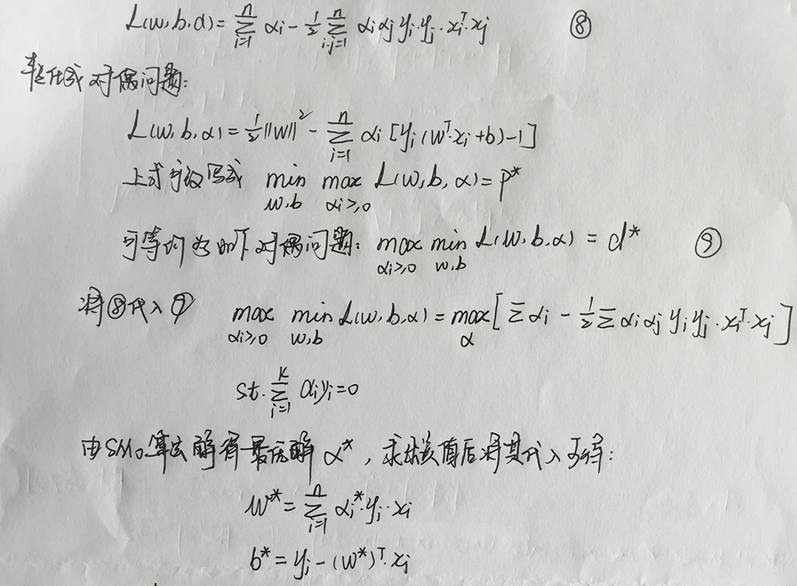 L(w,b,α)= Σ_{i=1}^{n} αi - 1/2 Σ_{i,j=1}^{n} αiαj yi·yj·xi^T·xj ⑧
转化成对偶问题:
L(w,b,α)=1/2||w||² - Σ_{i=1}^{n} αi [yi(w^T·xi+b)-1]
上式可改写成 min_{w,b} max_{αi≥0} L(w,b,α)=p*
可等价为如下对偶问题: max_{αi≥0} min_{w,b} L(w,b,α) = d* ⑨
将⑧代入⑨ max_{αi≥0} min_{w,b} L(w,b,α)=max_{α}[Σαi - 1/2 Σαiαj yiyj·xi^T·xj]
st. Σ_{i=1}^{k} αiyi=0
由SMO算法解得最优解α*,求出该值后将其代入可得:
w*= Σ_{i=1}^{n} αi*·yi·xi
b*= yi-(w*)^T·xi